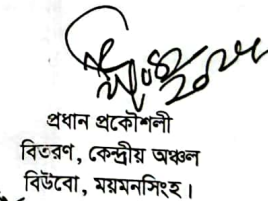 প্রধান প্রকৌশলী
বিতরণ, কেন্দ্রীয় অঞ্চল
বিউবো, ময়মনসিংহ।